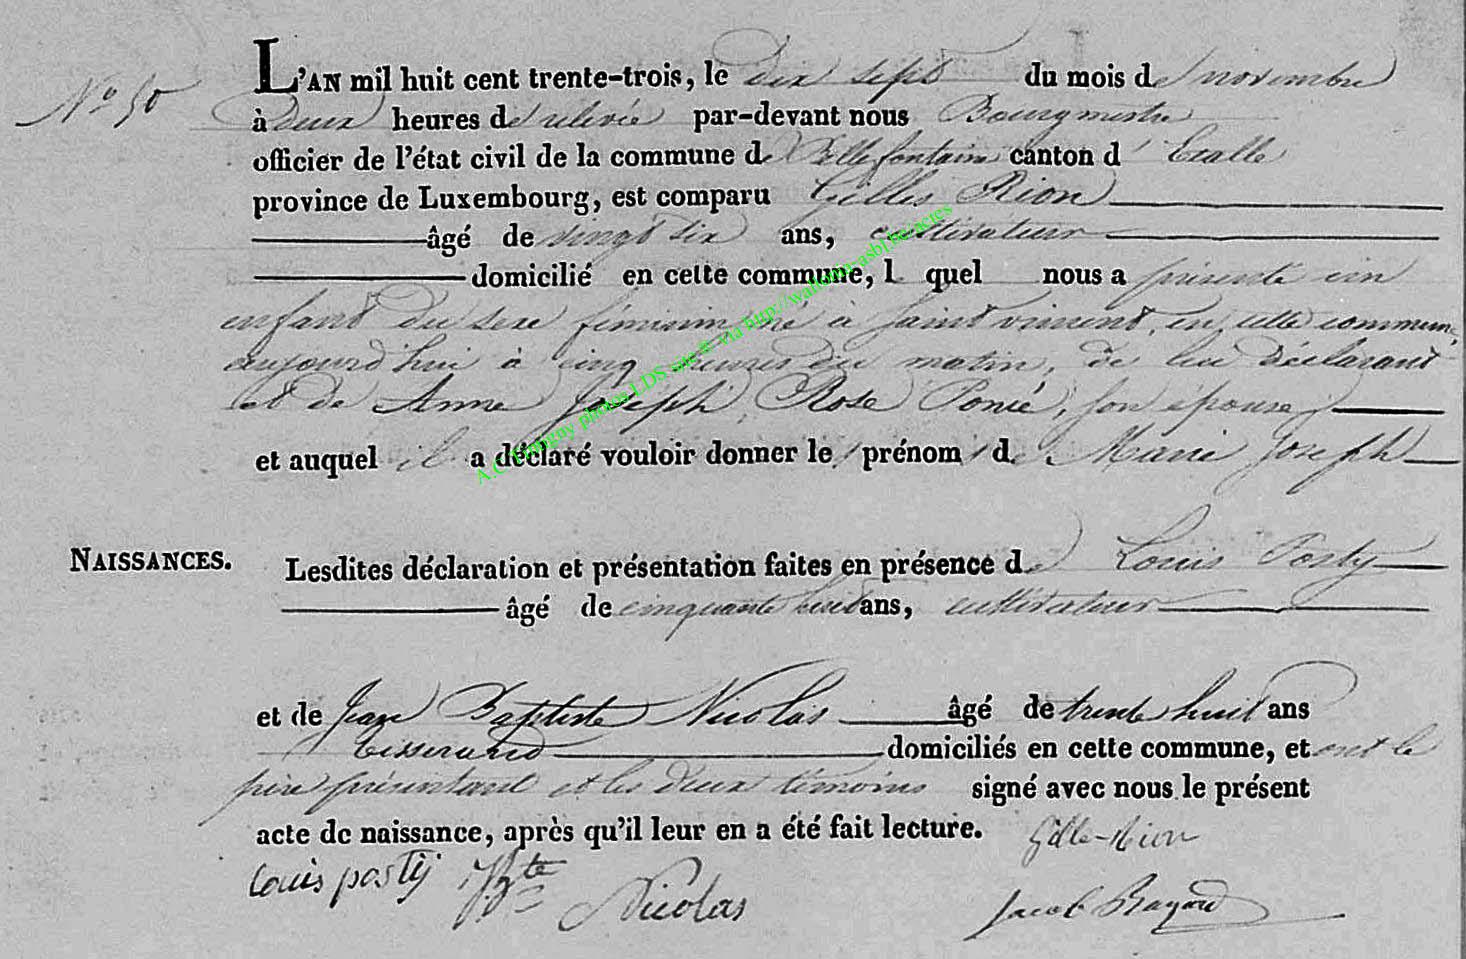 L'AN mil huit cent trente-trois, le dix sept du mois de novembre
N° 50
à deux heures de relevée par-devant nous Bourgmestre
officier de l'état civil de la commune de Bellefontaine canton d'Etalle
province de Luxembourg, est comparu Gilles Rion
âgé de vingt six ans, cultivateur
domicilié en cette commune, l quel nous a présenté un
enfant du sexe féminin, né à Saint vincent, en cette commune,
aujourd'hui à cinq heures du matin, de lui déclarant
et de Anne Joseph Rose Ponié, son épouse
et auquel il a déclaré vouloir donner le s prénom s de Marie Joseph
A.C. photos LDS site & via http://wallonia-asbl.be/actes
NAISSANCES.
Lesdites déclaration et présentation faites en présence de Louis Posty
âgé de cinquante huit ans, cultivateur
et de Jean Baptiste Nicolas âgé de trente huit ans
tisserand domiciliés en cette commune, et ont le
père présentant et les deux témoins signé avec nous le présent
acte de naissance, après qu'il leur en a été fait lecture.
Gille-Rion
Louis postij JBte
Nicolas
Jacob Bayard